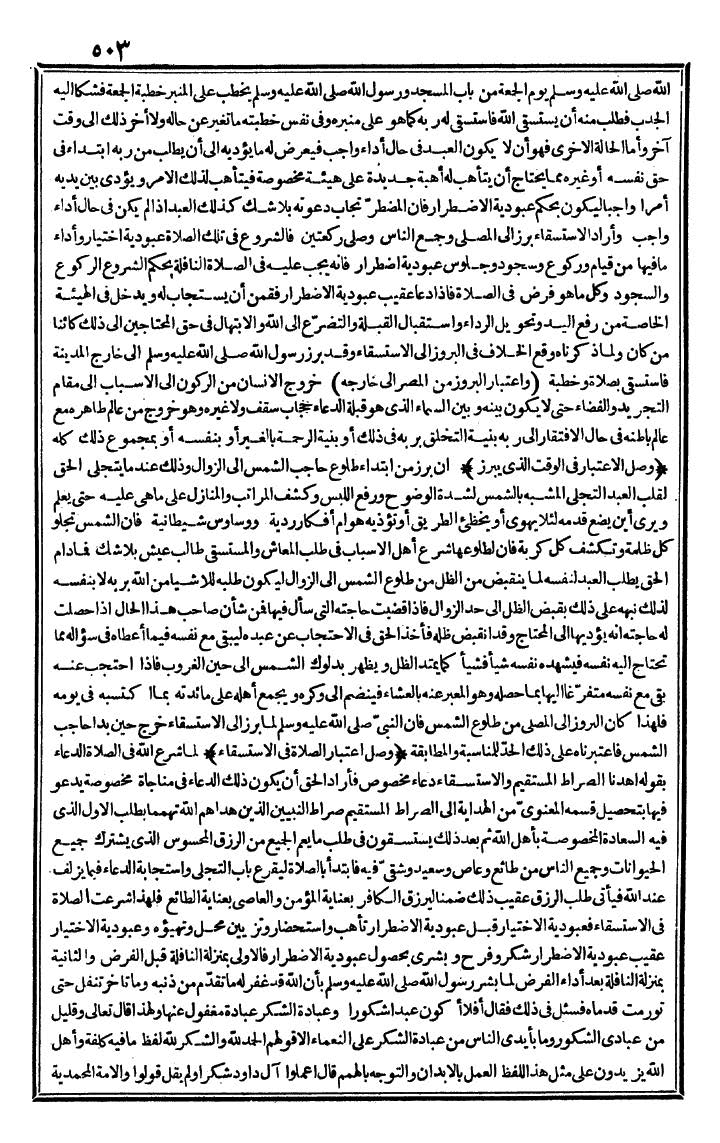 ٥٠٣
الله صلى الله عليه وسلم يوم الجمعة من باب المسجد ورسول الله صلى الله عليه وسلم يخطب على المنبر خطبة الجمعة فشكا اليه
الجدب فطلب منه أن يستسقى الله فاستسقى له ربه كما هو على منبره وفى نفس خطبته ما تغير عن حاله ولا أخر ذلك الى وقت
آخر وأما الحالة الاخرى فهو أن لا يكون العبد فى حال أداء واجب فيعرض له ما يؤديه الى أن يطلب من ربه ابتداء فى
حق نفسه أو غيره مما يحتاج أن يتأهب له أهبة جديدة على هيئة مخصوصة فيتأهب لذلك الامر ويؤدى بين يديه
أمرا واجبا ليكون بحكم عبودية الاضطرار فان المضطر تجاب دعوته بلا شك كذلك العبد اذا لم يكن فى حال أداء
واجب وأراد الاستسقاء برز الى المصلى وجمع الناس وصلى ركعتين فالشروع فى تلك الصلاة عبودية اختيار وأداء
ما فيها من قيام وركوع وسجود وجلوس عبودية اضطرار فانه يجب عليه فى الصلاة النافلة بحكم الشروع الركوع
والسجود وكل ما هو فرض فى الصلاة فاذا دعا عقيب عبودية الاضطرار فقمن أن يستجاب له ويدخل فى الهيئة
الخاصة من رفع اليد وتحويل الرداء واستقبال القبلة والتضرع الى الله والابتهال فى حق المحتاجين الى ذلك كائنا
من كان ولما ذكرناه وقع الخلاف فى البروز الى الاستسقاء وقد برز رسول الله صلى الله عليه وسلم الى خارج المدينة
فاستسقى بصلاة وخطبة (واعتبار البروز من المصر الى خارجه) خروج الانسان من الركون الى الاسباب الى مقام
التجريد والفضاء حتى لا يكون بينه وبين السماء الذى هو قبلة الدعاء حجاب سقف ولا غيره وهو خروج من عالم ظاهره مع
عالم باطنه فى حال الافتقار الى ربه بنية التخلق بربه فى ذلك أو بنية الرحمة بالغير أو بنفسه أو بمجموع ذلك كله
﴿وصل الاعتبار فى الوقت الذى يبرز﴾ ان برز من ابتداء طلوع حاجب الشمس الى الزوال وذلك عندما يتجلى الحق
لقلب العبد التجلى المشبه بالشمس لشدة الوضوح ورفع اللبس وكشف المراتب والمنازل على ما هى عليه حتى يعلم
ويرى أين يضع قدمه لئلا يهوى أو يخطئ الطريق أو تؤذيه هوام أفكار ردية ووساوس شيطانية فان الشمس تجلو
كل ظلمة وتكشف كل كربة فان لطلوعها شرع أهل الاسباب فى طلب المعاش والمستسقى طالب عيش بلا شك فما دام
الحق يطلب العبد لنفسه لما ينقبض من الظل من طلوع الشمس الى الزوال ليكون طلبه للاشيا من الله بربه لا بنفسه
لذلك نبهه على ذلك بقبض الظل الى حد الزوال فاذا قضيت حاجته التى سأل فيها فمن شأن صاحب هذا الحال اذا حصلت
له حاجته انه يؤديها الى المحتاج وقد انقبض ظله فأخذ الحق فى الاحتجاب عن عبده ليبقى مع نفسه فيما أعطاه فى سؤاله مما
تحتاج اليه نفسه فيشهده نفسه شيأ فشيأ كما يمتد الظل ويظهر بدلوك الشمس الى حين الغروب فاذا احتجب عنه
بقى مع نفسه متفرغا اليها بما حصله وهو المعبر عنه بالعشاء فينضم الى وكره ويجمع أهله على مائدته بما اكتسبه فى يومه
فلهذا كان البروز الى المصلى من طلوع الشمس فان النبى صلى الله عليه وسلم لما برز الى الاستسقاء خرج حين بدا حاجب
الشمس فاعتبرناه على ذلك الحد للمناسبة والمطابقة ﴿وصل اعتبار الصلاة فى الاستسقاء﴾ لما شرع الله فى الصلاة الدعاء
بقوله اهدنا الصراط المستقيم والاستسقاء دعاء مخصوص فأراد الحق أن يكون ذلك الدعاء فى مناجاة مخصوصة يدعو
فيها بتحصيل قسمه المعنوى من الهداية الى الصراط المستقيم صراط النبيين الذين هداهم الله تهمما بطلب الاول الذى
فيه السعادة المخصوصة بأهل الله ثم بعد ذلك يستسقون فى طلب ما يعم الجميع من الرزق المحسوس الذى يشترك جميع
الحيوانات وجميع الناس من طائع وعاص وسعيد وشقى فيه فابتدأ بالصلاة ليقرع باب التجلى واستجابة الدعاء فيما يزلف
عند الله فيأتى طلب الرزق عقيب ذلك ضمنا ليرزق الكافر بعناية المؤمن والعاصى بعناية الطائع فلهذا شرعت الصلاة
فى الاستسقاء فعبودية الاختيار قبل عبودية الاضطرار تأهب واستحضار وتزيين محل وتهيؤه وعبودية الاختيار
عقيب عبودية الاضطرار شكر وفرح وبشرى بحصول عبودية الاضطرار فالاولى بمنزلة النافلة قبل الفرض والثانية
بمنزلة النافلة بعد أداء الفرض لما بشر رسول الله صلى الله عليه وسلم بأن الله قد غفر له ما تقدم من ذنبه وما تاخر تنفل حتى
تورمت قدماه فسئل فى ذلك فقال أفلا أكون عبدا شكورا وعبادة الشكر عبادة مغفول عنها ولهذا قال تعالى وقليل
من عبادى الشكور وما بأيدى الناس من عبادة الشكر على النعماء الا قولهم الحمد لله والشكر لله لفظ ما فيه كلفة وأهل
الله يزيدون على مثل هذا اللفظ العمل بالابدان والتوجه بالهمم قال اعملوا آل داود شكرا ولم يقل قولوا والامة المحمدية